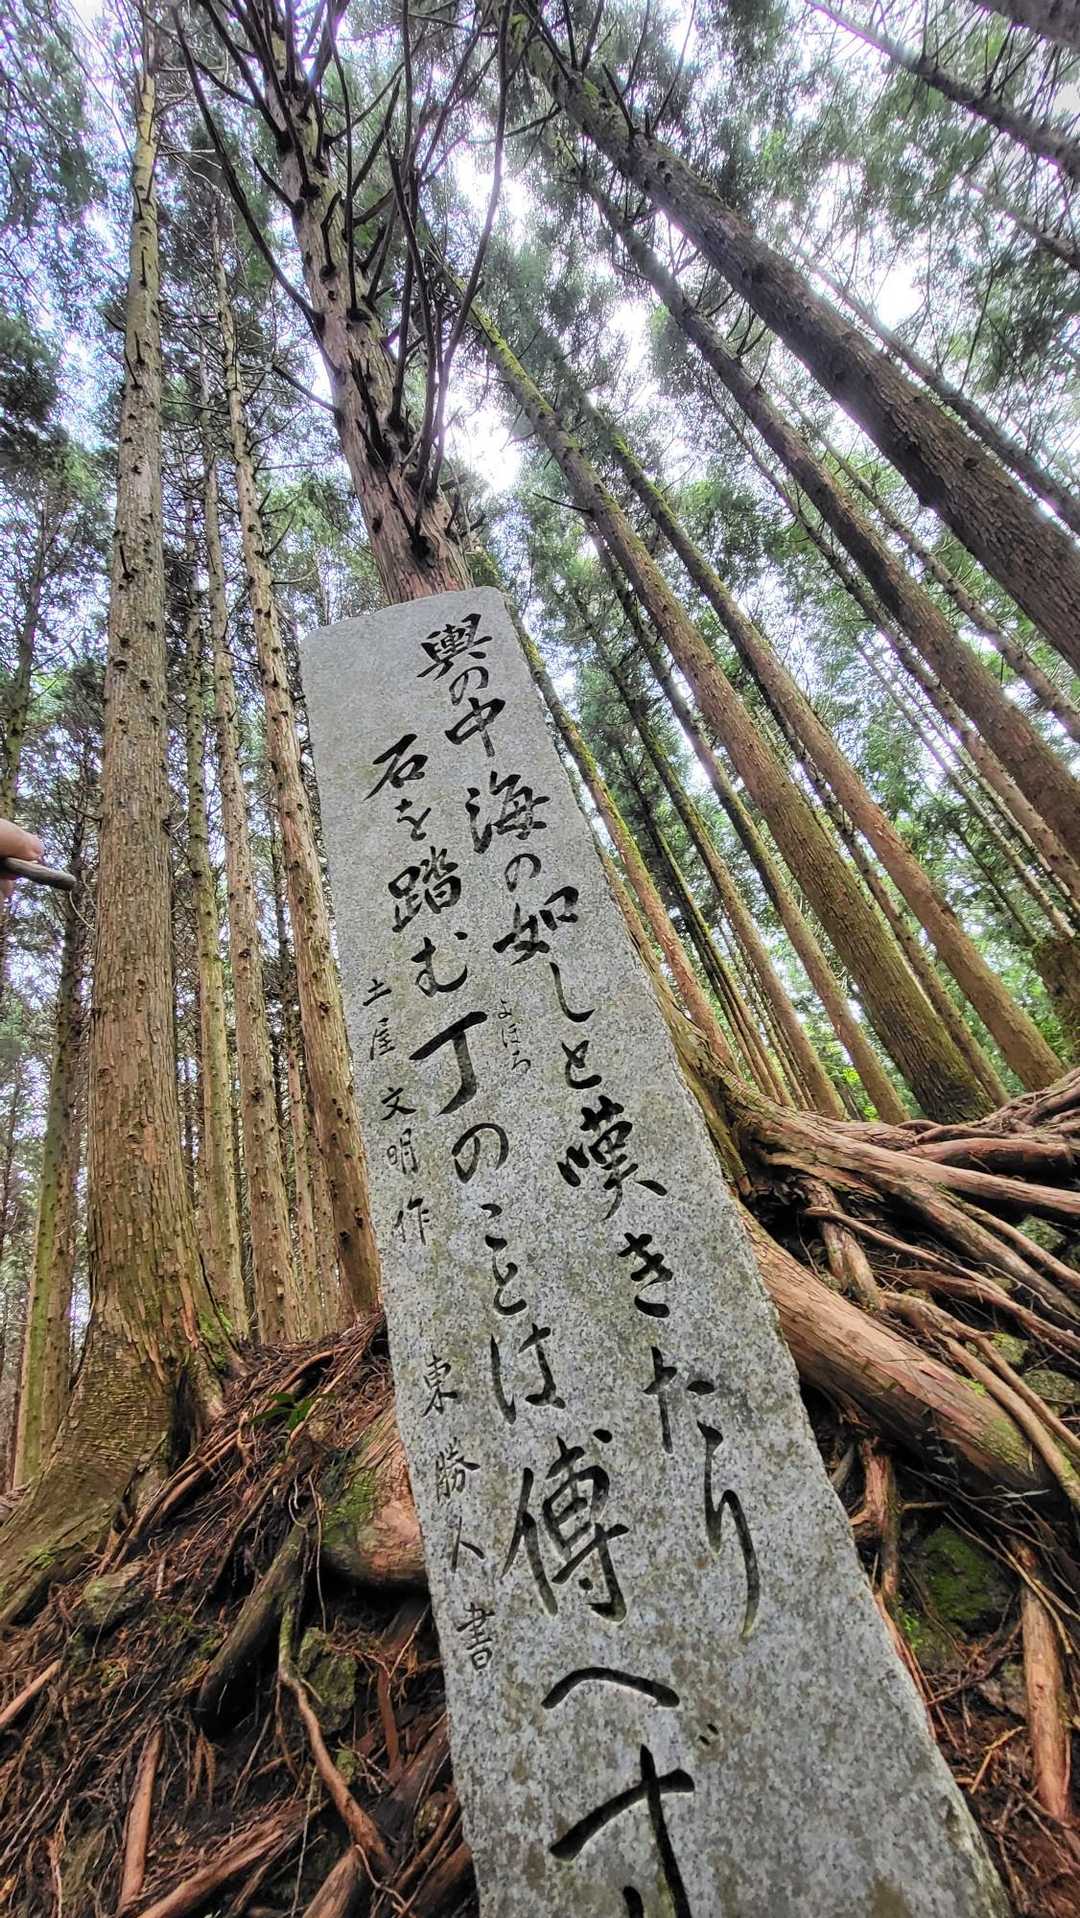 輿の中海の如しと嘆きたり
石を踏む丁のことは傳へず
よほろ
土屋文明作　東勝人書